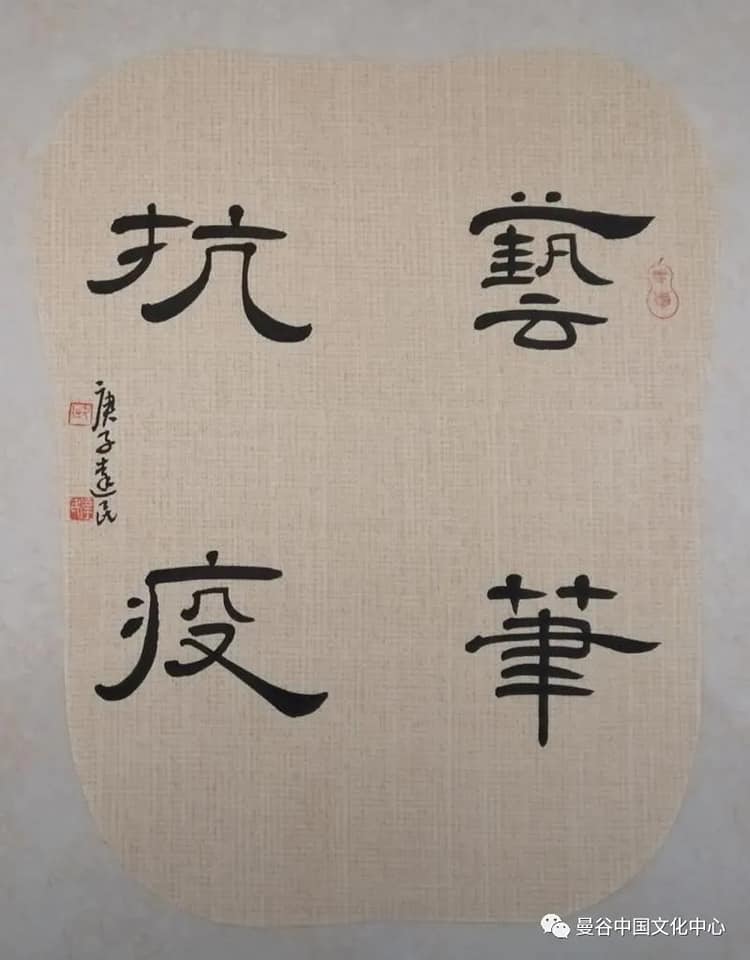 藝筆
抗疫
庚子達民
曼谷中国文化中心